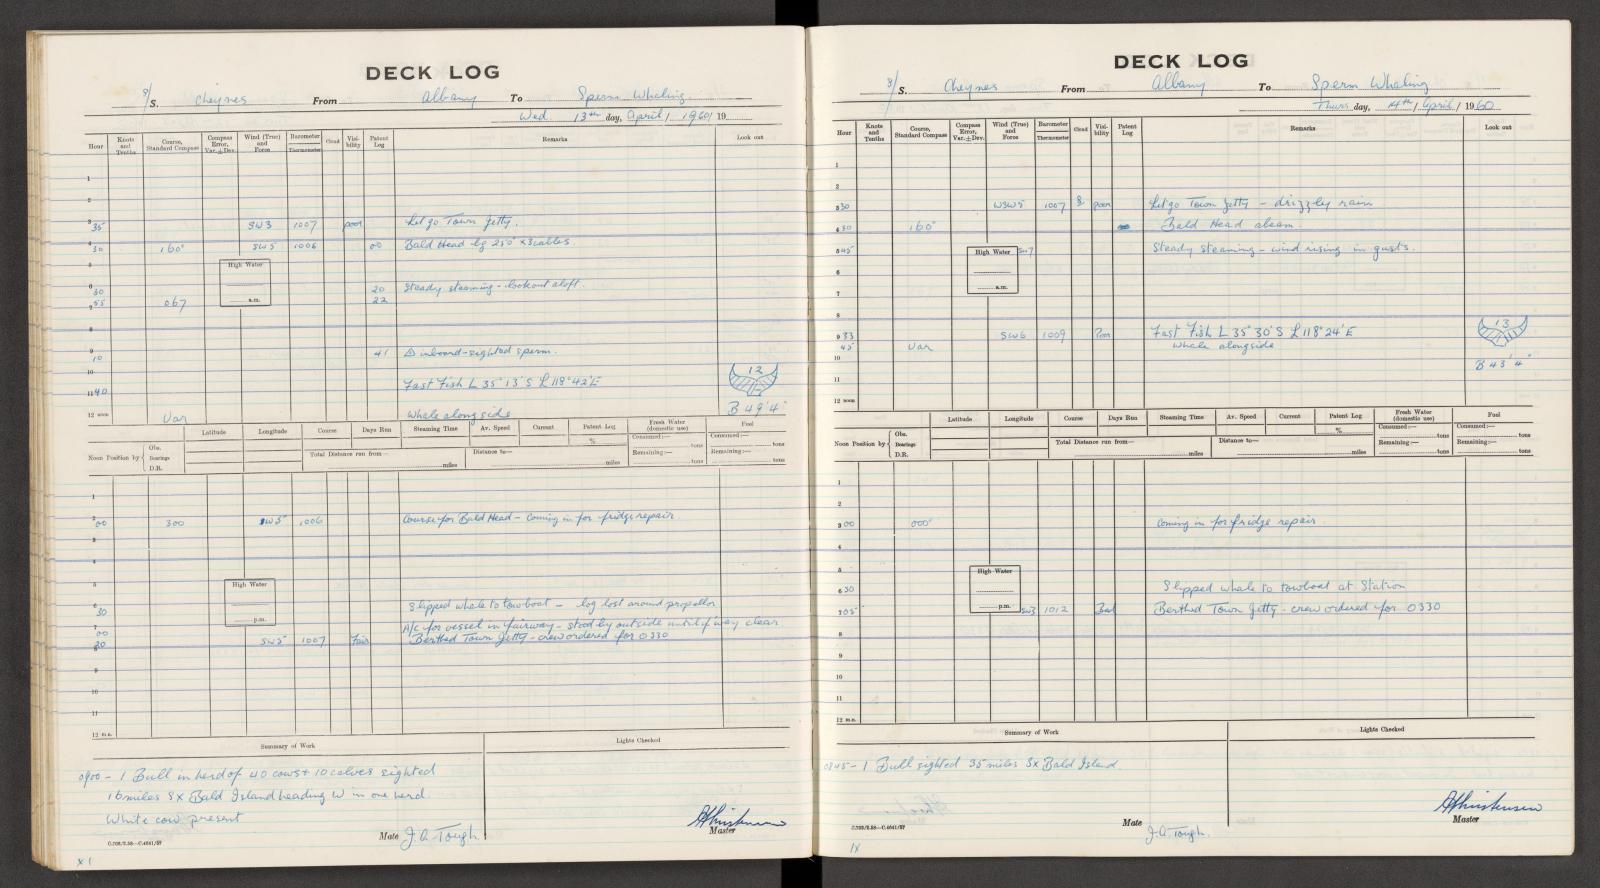 DECK LOG
S/S. Cheynes From Albany To Sperm Whaling
Wed. 13th day, April / 1960 / 19
Hour Knots and Tenths Course, Standard Compass Compass Error, Var. ± Dev. Wind (True) and Force Barometer Thermometer Cloud Visibility Patent Log Remarks Look out
1
2
3 35 SW3 1007 poor Let go Town Jetty.
4 30 160° SW5 1006 00 Bald Head bg 250° x 3 cables
5 High Water
6 30 20 Steady steaming - lookout aloft.
7 55 067 a.m. 22
8
9 10 41 inboard - sighted sperm.
10 12
11 40 Fast Fish L 35° 13' S L 118° 42' E
12 noon Var Whale alongside B 49' 4"
Latitude Longitude Course Days Run Steaming Time Av. Speed Current Patent Log Fresh Water (domestic use) Fuel
% Consumed:— tons Consumed:— tons
Noon Position by { Obs. Bearings D.R. Total Distance run from— miles Distance to— miles Remaining:— tons Remaining:— tons
1
2 00 300 SW5 1006 Course for Bald Head - Coming in for fridge repair.
3
4
5 High Water
6 30 Slipped whale to towboat - log lost around propellor
p.m. A/c for vessel in fairway - stood by outside until f'way clear
7 00
20 SW5 1007 Fair Berthed Town Jetty - crew ordered for 0330
8
9
10
11
12 m.n.
Summary of Work Lights Checked
0900 - 1 Bull in herd of 40 cows + 10 calves sighted
16 miles SX Bald Island heading W in one herd.
White cow present
Mate J.A. Tough. Master
C.709/2.58—C.4641/57
x 1
DECK LOG
S/S. Cheynes From Albany To Sperm Whaling
Thurs day, 14th / April / 1960
Hour Knots and Tenths Course, Standard Compass Compass Error, Var. ± Dev. Wind (True) and Force Barometer Thermometer Cloud Visibility Patent Log Remarks Look out
1
2
3 30 WSW5 1007 8 poor Let go Town Jetty - drizzly rain
4 30 160° Bald Head abeam.
5 45 High Water SW7 Steady steaming - wind rising in gusts.
6
7 a.m.
8
9 33 SW6 1009 Poor Fast Fish L 35° 30' S L 118° 24' E 13
45 Var Whale alongside
10 B 43' 4"
11
12 noon
Latitude Longitude Course Days Run Steaming Time Av. Speed Current Patent Log Fresh Water (domestic use) Fuel
% Consumed:— tons Consumed:— tons
Noon Position by { Obs. Bearings D.R. Total Distance run from— miles Distance to— miles Remaining:— tons Remaining:— tons
1
2
3 00 000° Coming in for fridge repair.
4
5 High Water
6 30 Slipped whale to towboat at Station
7 05 p.m. SW3 1012 Berthed Town Jetty - crew ordered for 0330
8
9
10
11
12 m.n.
Summary of Work Lights Checked
0845 - 1 Bull sighted 35 miles SX Bald Island.
Mate J.A. Tough. Master
C.709/2.58—C.4641/57
1x